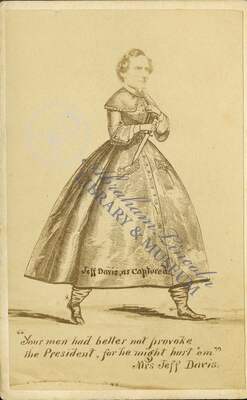 Abraham Lincoln
LIBRARY & MUSEUM
Jeff Davis, as Captured.
"Your men had better not provoke
the President, for he might hurt 'em"
Mrs Jeff Davis.